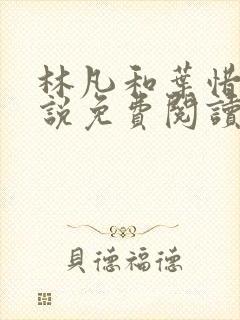 林凡和葉惜
說免費閱讀
貝德福德